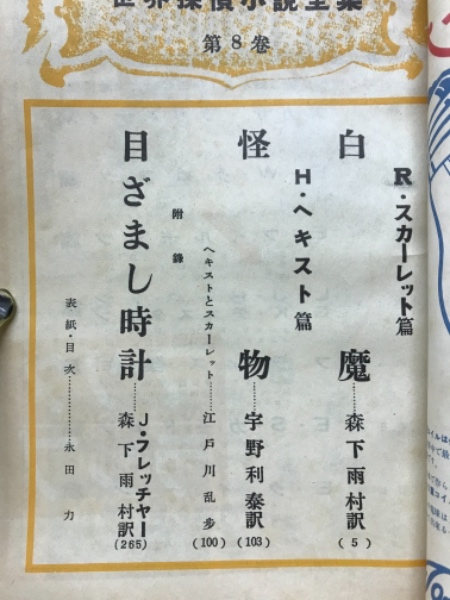 世界探偵小説全集
第8巻
R・スカーレット篇
白魔………森下雨村訳(5)
H・ヘキスト篇
怪物………宇野利泰訳(103)
ヘキストとスカーレット………江戸川乱歩(100)
附録
目ざまし時計………J・フレッチャー
森下雨村訳(265)
表紙・目次………永田力